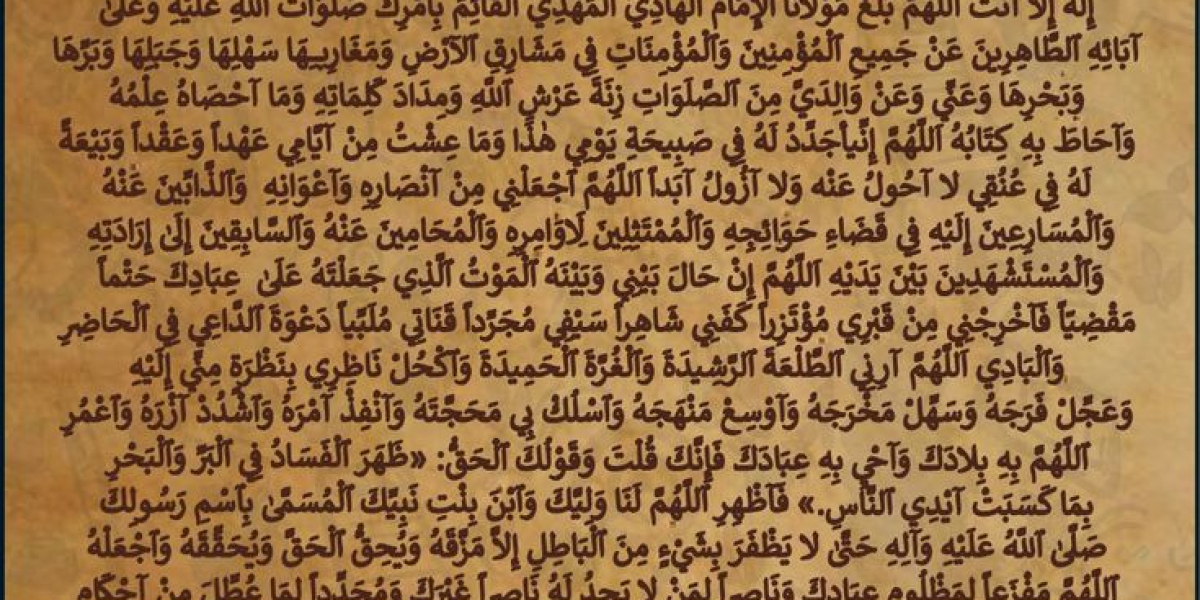 إِلَهَ إِلاَّ أَنْتَ اَللَّهُمَّ بَلِّغْ مَوْلاَنَا اَلْإِمَامَ اَلْهَادِيَ اَلْمَهْدِيَّ اَلْقَائِمَ بِأَمْرِكَ صَلَوَاتُ اَللَّهِ عَلَيْهِ وَعَلَىٰ
آبَائِهِ اَلطَّاهِرِينَ عَنْ جَمِيعِ اَلْمُؤْمِنِينَ وَاَلْمُؤْمِنَاتِ فِي مَشَارِقِ اَلْأَرْضِ وَمَغَارِبِهَا سَهْلِهَا وَجَبَلِهَا وَبَرِّهَا
وَبَحْرِهَا وَعَنِّي وَعَنْ وَالِدَيَّ مِنَ اَلصَّلَوَاتِ زِنَةَ عَرْشِ اَللَّهِ وَمِدَادَ كَلِمَاتِهِ وَمَا أَحْصَاهُ عِلْمُهُ
وَأَحَاطَ بِهِ كِتَابُهُ اَللَّهُمَّ إِنِّيأُجَدِّدُ لَهُ فِي صَبِيحَةِ يَوْمِي هٰذَا وَمَا عِشْتُ مِنْ أَيَّامِي عَهْداً وَعَقْداً وَبَيْعَةً
لَهُ فِي عُنُقِي لا أَحُولُ عَنْه وَلا أَزُولُ أَبَداً اَللَّهُمَّ اَجْعَلْنِي مِنْ أَنْصَارِهِ وَأَعْوَانِهِ وَاَلذَّابِّينَ عَنْهُ
وَاَلْمُسَارِعِينَ إِلَيْهِ فِي قَضَاءِ حَوَائِجِهِ وَاَلْمُمْتَثِلِينَ لِأَوَامِرِهِ وَاَلْمُحَامِينَ عَنْهُ وَاَلسَّابِقِينَ إِلَىٰ إِرَادَتِهِ
وَاَلْمُسْتَشْهَدِينَ بَيْنَ يَدَيْهِ اَللَّهُمَّ إِنْ حَالَ بَيْنِي وَبَيْنَهُ اَلْمَوْتُ اَلَّذِي جَعَلْتَهُ عَلَىٰ عِبَادِكَ حَتْماً
مَقْضِيّاً فَأَخْرِجْنِي مِنْ قَبْرِي مُؤْتَزِراً كَفَنِي شَاهِراً سَيْفِي مُجَرِّداً قَنَاتِي مُلَبِّياً دَعْوَةَ اَلدَّاعِي فِي اَلْحَاضِرِ
وَاَلْبَادِي اَللَّهُمَّ أَرِنِي اَلطَّلْعَةَ اَلرَّشِيدَةَ وَاَلْغُرَّةَ اَلْحَمِيدَةَ وَاَكْحُلْ نَاظِرِي بِنَظْرَةٍ مِنِّي إِلَيْهِ
وَعَجِّلْ فَرَجَهُ وَسَهِّلْ مَخْرَجَهُ وَأَوْسِعْ مَنْهَجَهُ وَاَسْلُكْ بِي مَحَجَّتَهُ وَأَنْفِذْ أَمْرَهُ وَاَشْدُدْ أَزْرَهُ وَاَعْمُرِ
اَللَّهُمَّ بِهِ بِلادَكَ وَأَحْيِ بِهِ عِبَادَكَ فَإِنَّكَ قُلْتَ وَقَوْلُكَ اَلْحَقُّ: «ظَهَرَ اَلْفَسَادُ فِي اَلْبَرِّ وَاَلْبَحْرِ
بِمَا كَسَبَتْ أَيْدِي اَلنَّاسِ.» فَأَظْهِرِ اَللَّهُمَّ لَنَا وَلِيَّكَ وَاَبْنَ بِنْتِ نَبِيِّكَ اَلْمُسَمَّىٰ بِاَسْمِ رَسُولِكَ
صَلَّىٰ اَللَّهُ عَلَيْهِ وَآلِهِ حَتَّىٰ لا يَظْفَرَ بِشَيْءٍ مِنَ اَلْبَاطِلِ إِلاَّ مَزَّقَهُ وَيُحِقُّ اَلْحَقَّ وَيُحَقِّقَهُ وَاَجْعَلْهُ
اَللَّهُمَّ مَفْزَعاً لِمَظْلُومِ عِبَادِكَ وَنَاصِراً لِمَنْ لا يَجِدُ لَهُ نَاصِراً غَيْرَكَ وَمُجَدِّداً لِمَا عُطِّلَ مِنْ أَحْكَامِ